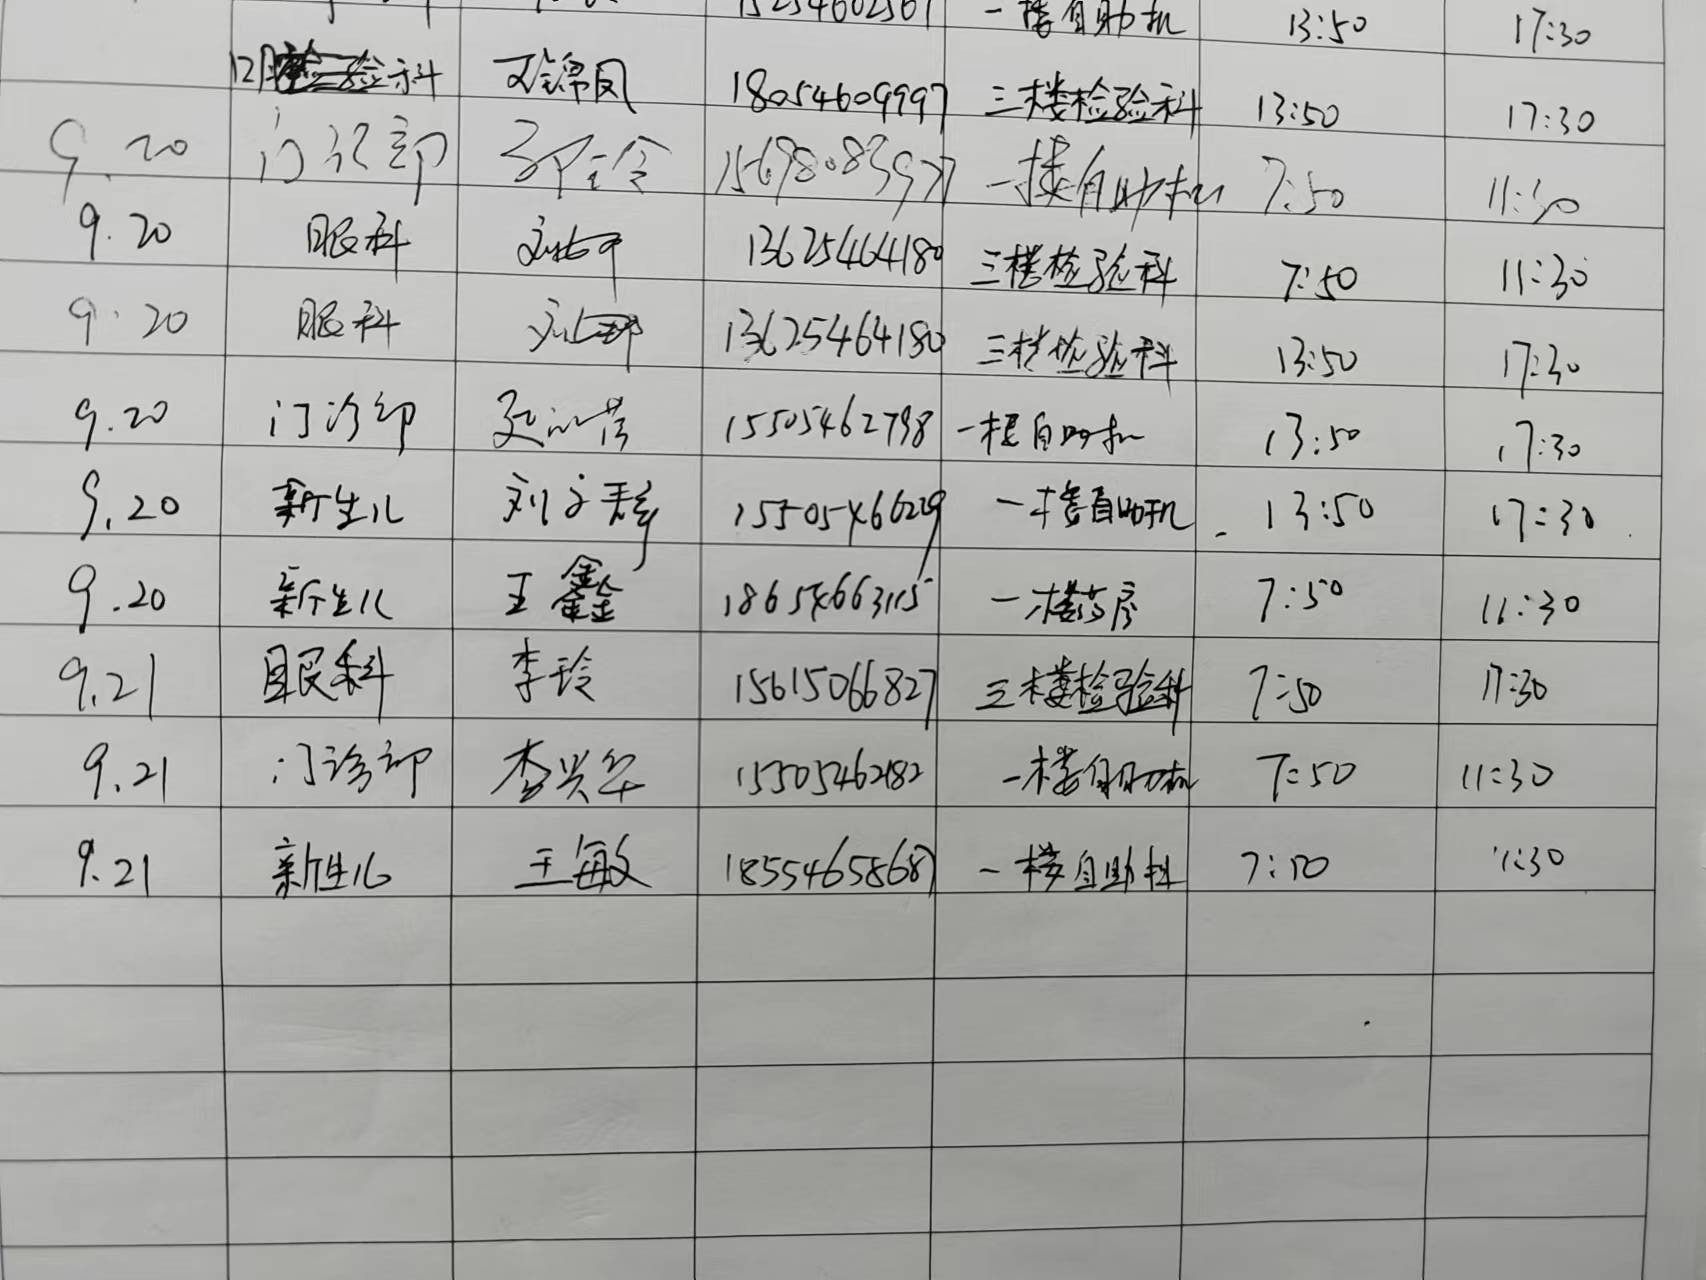 一楼自助机 13:50 17:30
科 凤 18054609997 三楼检验科 13:50 17:30
9.20 门诊部 一楼自助机 7:50 11:30
9.20 眼科 刘 13625464180 三楼检验科 7:50 11:30
9.20 眼科 刘 13625464180 三楼检验科 13:50 17:30
9.20 门诊部 15505462798 一楼自助机 13:50 17:30
9.20 新生儿 刘文 一楼自助机 13:50 17:30
9.20 新生儿 王鑫 18654663115 一楼药房 7:50 11:30
9.21 眼科 李玲 15615066827 三楼检验科 7:50 17:30
9.21 门诊部 李兴华 15505462182 一楼自助机 7:50 11:30
9.21 新生儿 王敏 18554658687 一楼自助机 7:50 11:30